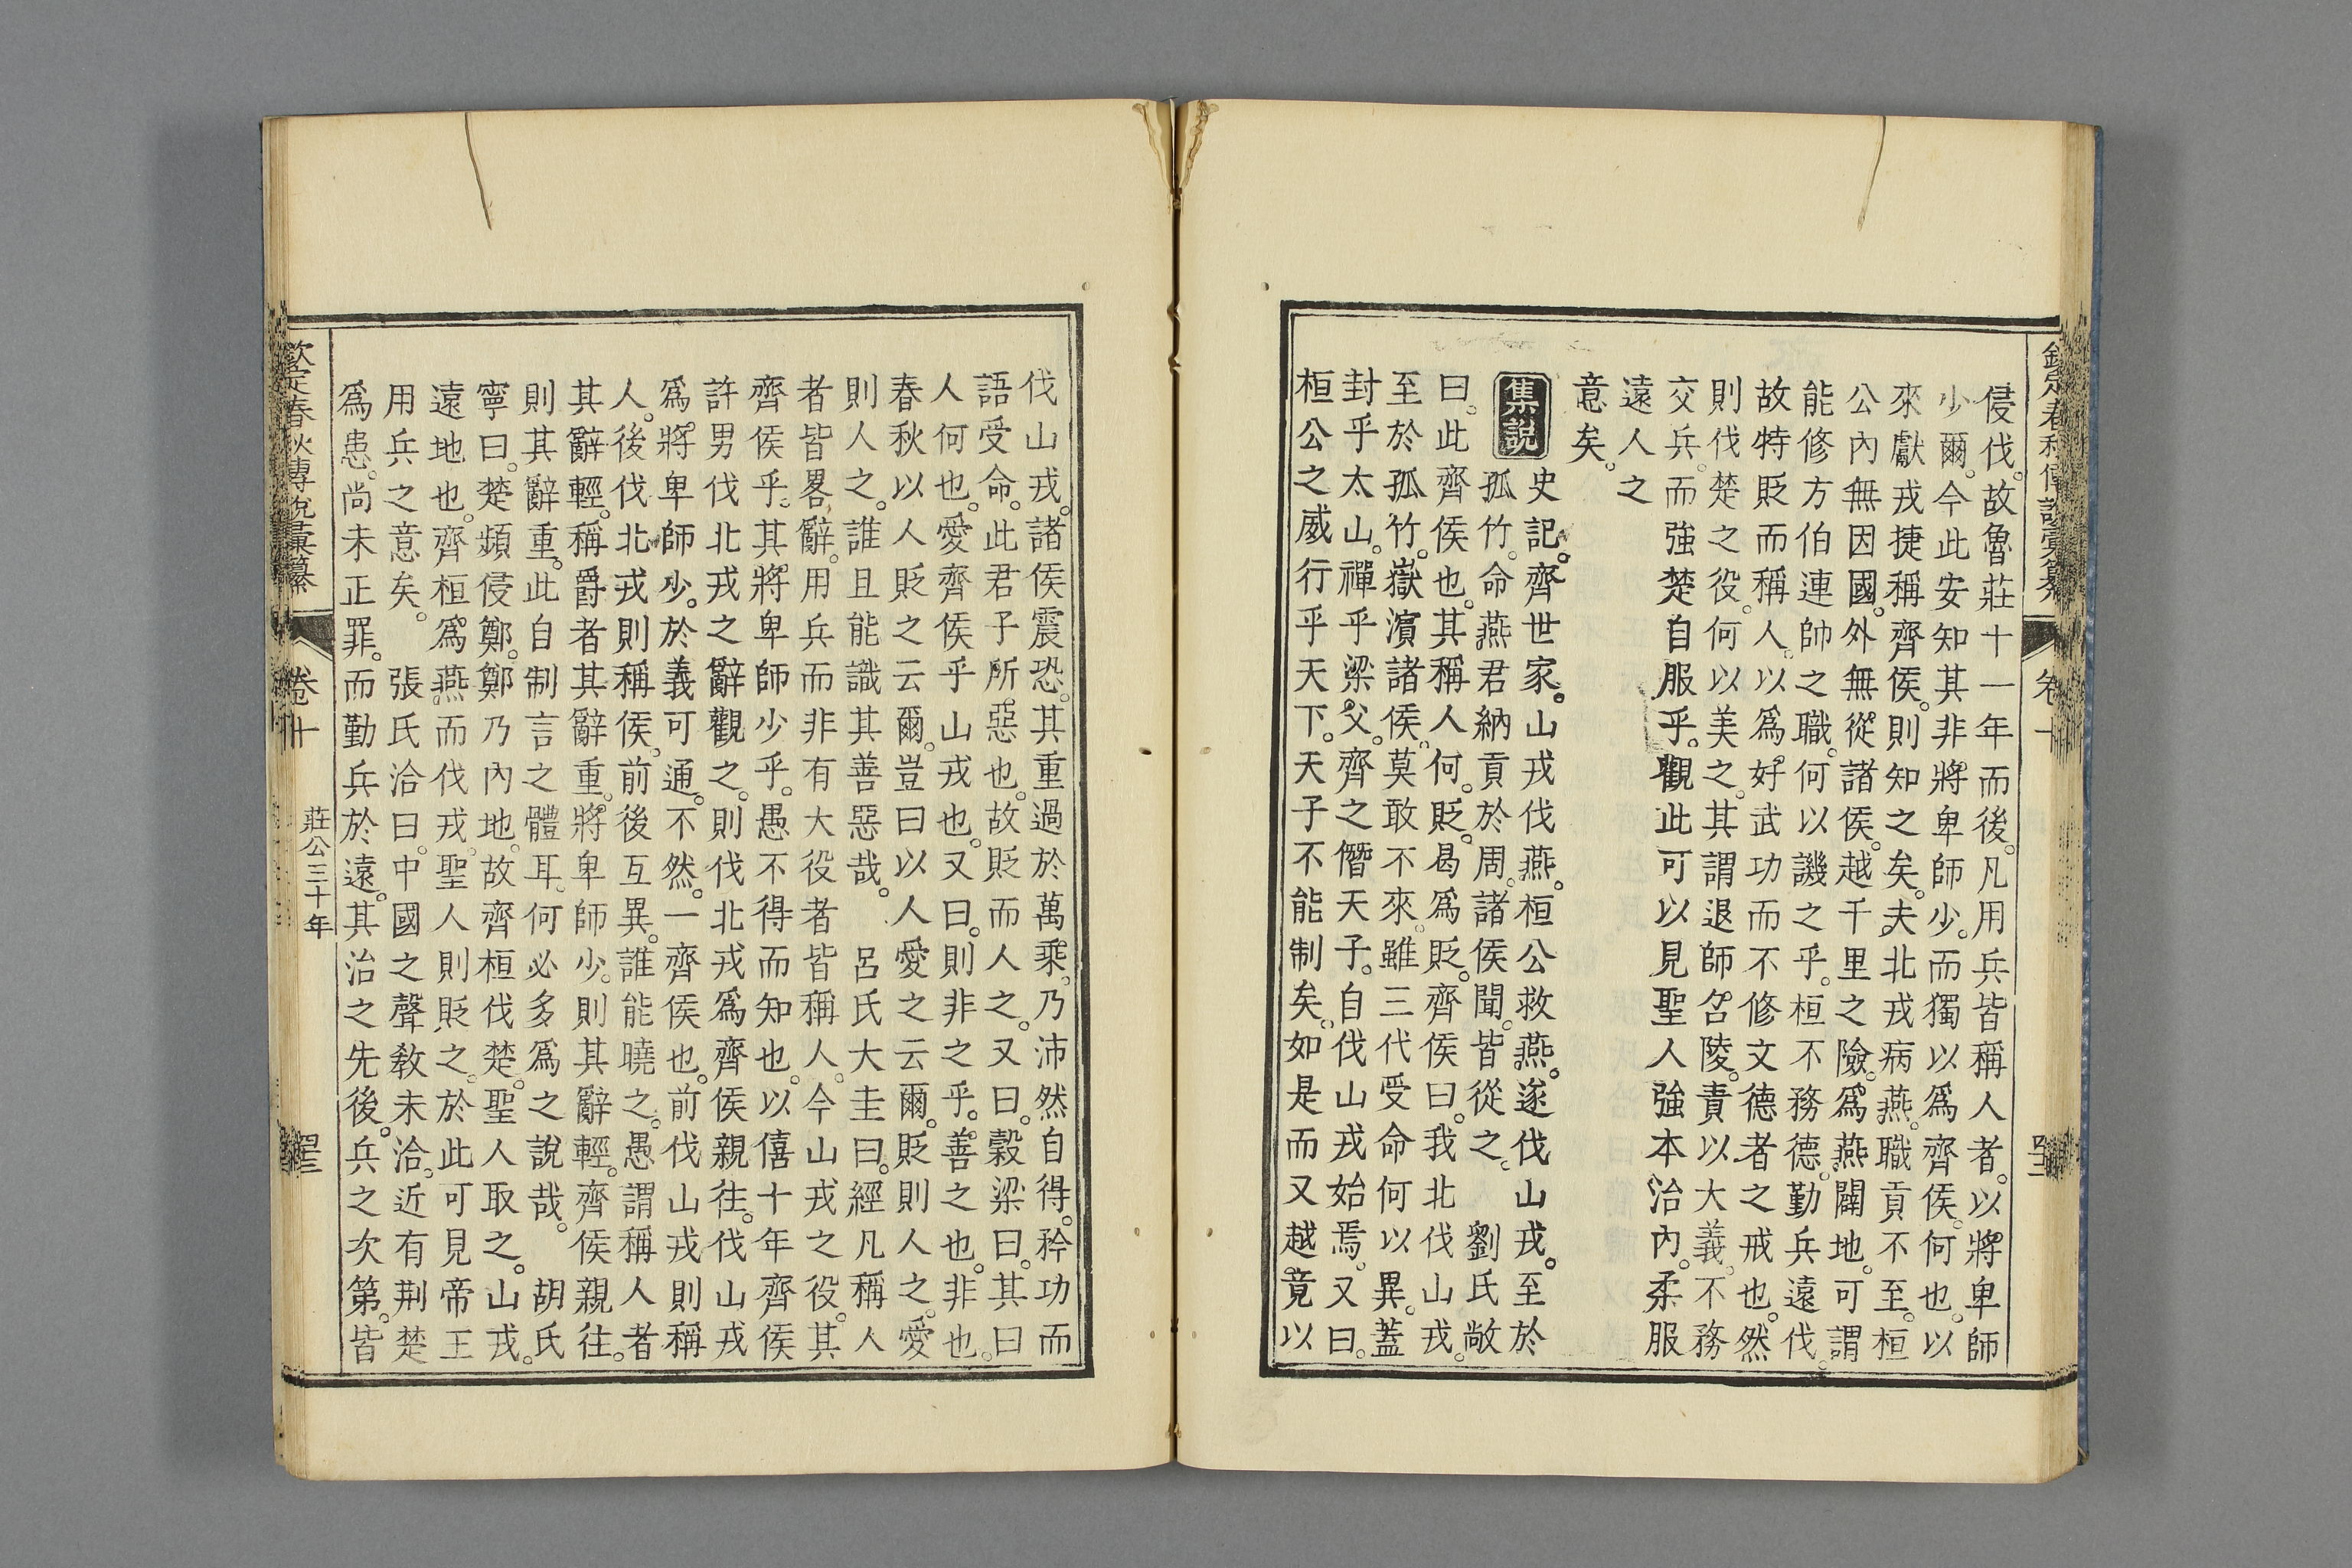 欽定春秋傳說彙纂
卷十
侵伐。故魯莊十一年而後。凡用兵皆稱人者。以將卑師
少爾。今此安知其非將卑師少。而獨以爲齊侯。何也。以
來獻戎捷稱齊侯。則知之矣。夫北戎病燕。職貢不至。桓
公內無因國。外無從諸侯。越千里之險。爲燕闢地。可謂
能修方伯連帥之職。何以譏之乎。桓不務德。勤兵遠伐。
故特貶而稱人。以爲好武功而不修文德者之戒也。然
則伐楚之役。何以美之。其謂退師召陵。責以大義。不務
交兵。而強楚自服乎。觀此可以見聖人強本治內。柔服
遠人之
意矣。
集說
史記。齊世家。山戎伐燕。桓公救燕。遂伐山戎。至於
孤竹。命燕君納貢於周。諸侯聞。皆從之。 劉氏敞
曰。此齊侯也。其稱人何。貶。曷爲貶。齊侯曰。我北伐山戎。
至於孤竹。嶽濵諸侯。莫敢不來。雖三代受命何以異。蓋
封乎太山。禪乎梁父。齊之僭天子。自伐山戎始焉。又曰。
桓公之威行乎天下。天子不能制矣。如是而又越竟以
伐山戎。諸侯震恐。其重過於萬乘。乃沛然自得。矜功而
語受命。此君子所惡也。故貶而人之。又曰。穀梁曰。其曰
人何也。愛齊侯乎山戎也。又曰。則非之乎。善之也。非也。
春秋以人貶之云爾。豈曰以人愛之云爾。貶則人之。愛
則人之。誰且能識其善惡哉。 呂氏大圭曰。經凡稱人
者皆畧辭。用兵而非有大役者皆稱人。今山戎之役。其
齊侯乎。其將卑師少乎。愚不得而知也。以僖十年齊侯
許男伐北戎之辭觀之。則伐北戎爲齊侯親往。伐山戎
爲將卑師少。於義可通。不然。一齊侯也。前伐山戎則稱
人。後伐北戎則稱侯。前後互異。誰能曉之。愚謂稱人者
其辭輕。稱爵者其辭重。將卑師少。則其辭輕。齊侯親往。
則其辭重。此自制言之體耳。何必多爲之說哉。 胡氏
寧曰。楚頻侵鄭。鄭乃內地。故齊桓伐楚。聖人取之。山戎。
遠地也。齊桓爲燕而伐戎。聖人則貶之。於此可見帝王
用兵之意矣。 張氏洽曰。中國之聲敎未洽。近有荆楚
爲患。尚未正罪。而勤兵於遠。其治之先後。兵之次第。皆
欽定春秋傳說彙纂
卷十
莊公三十年